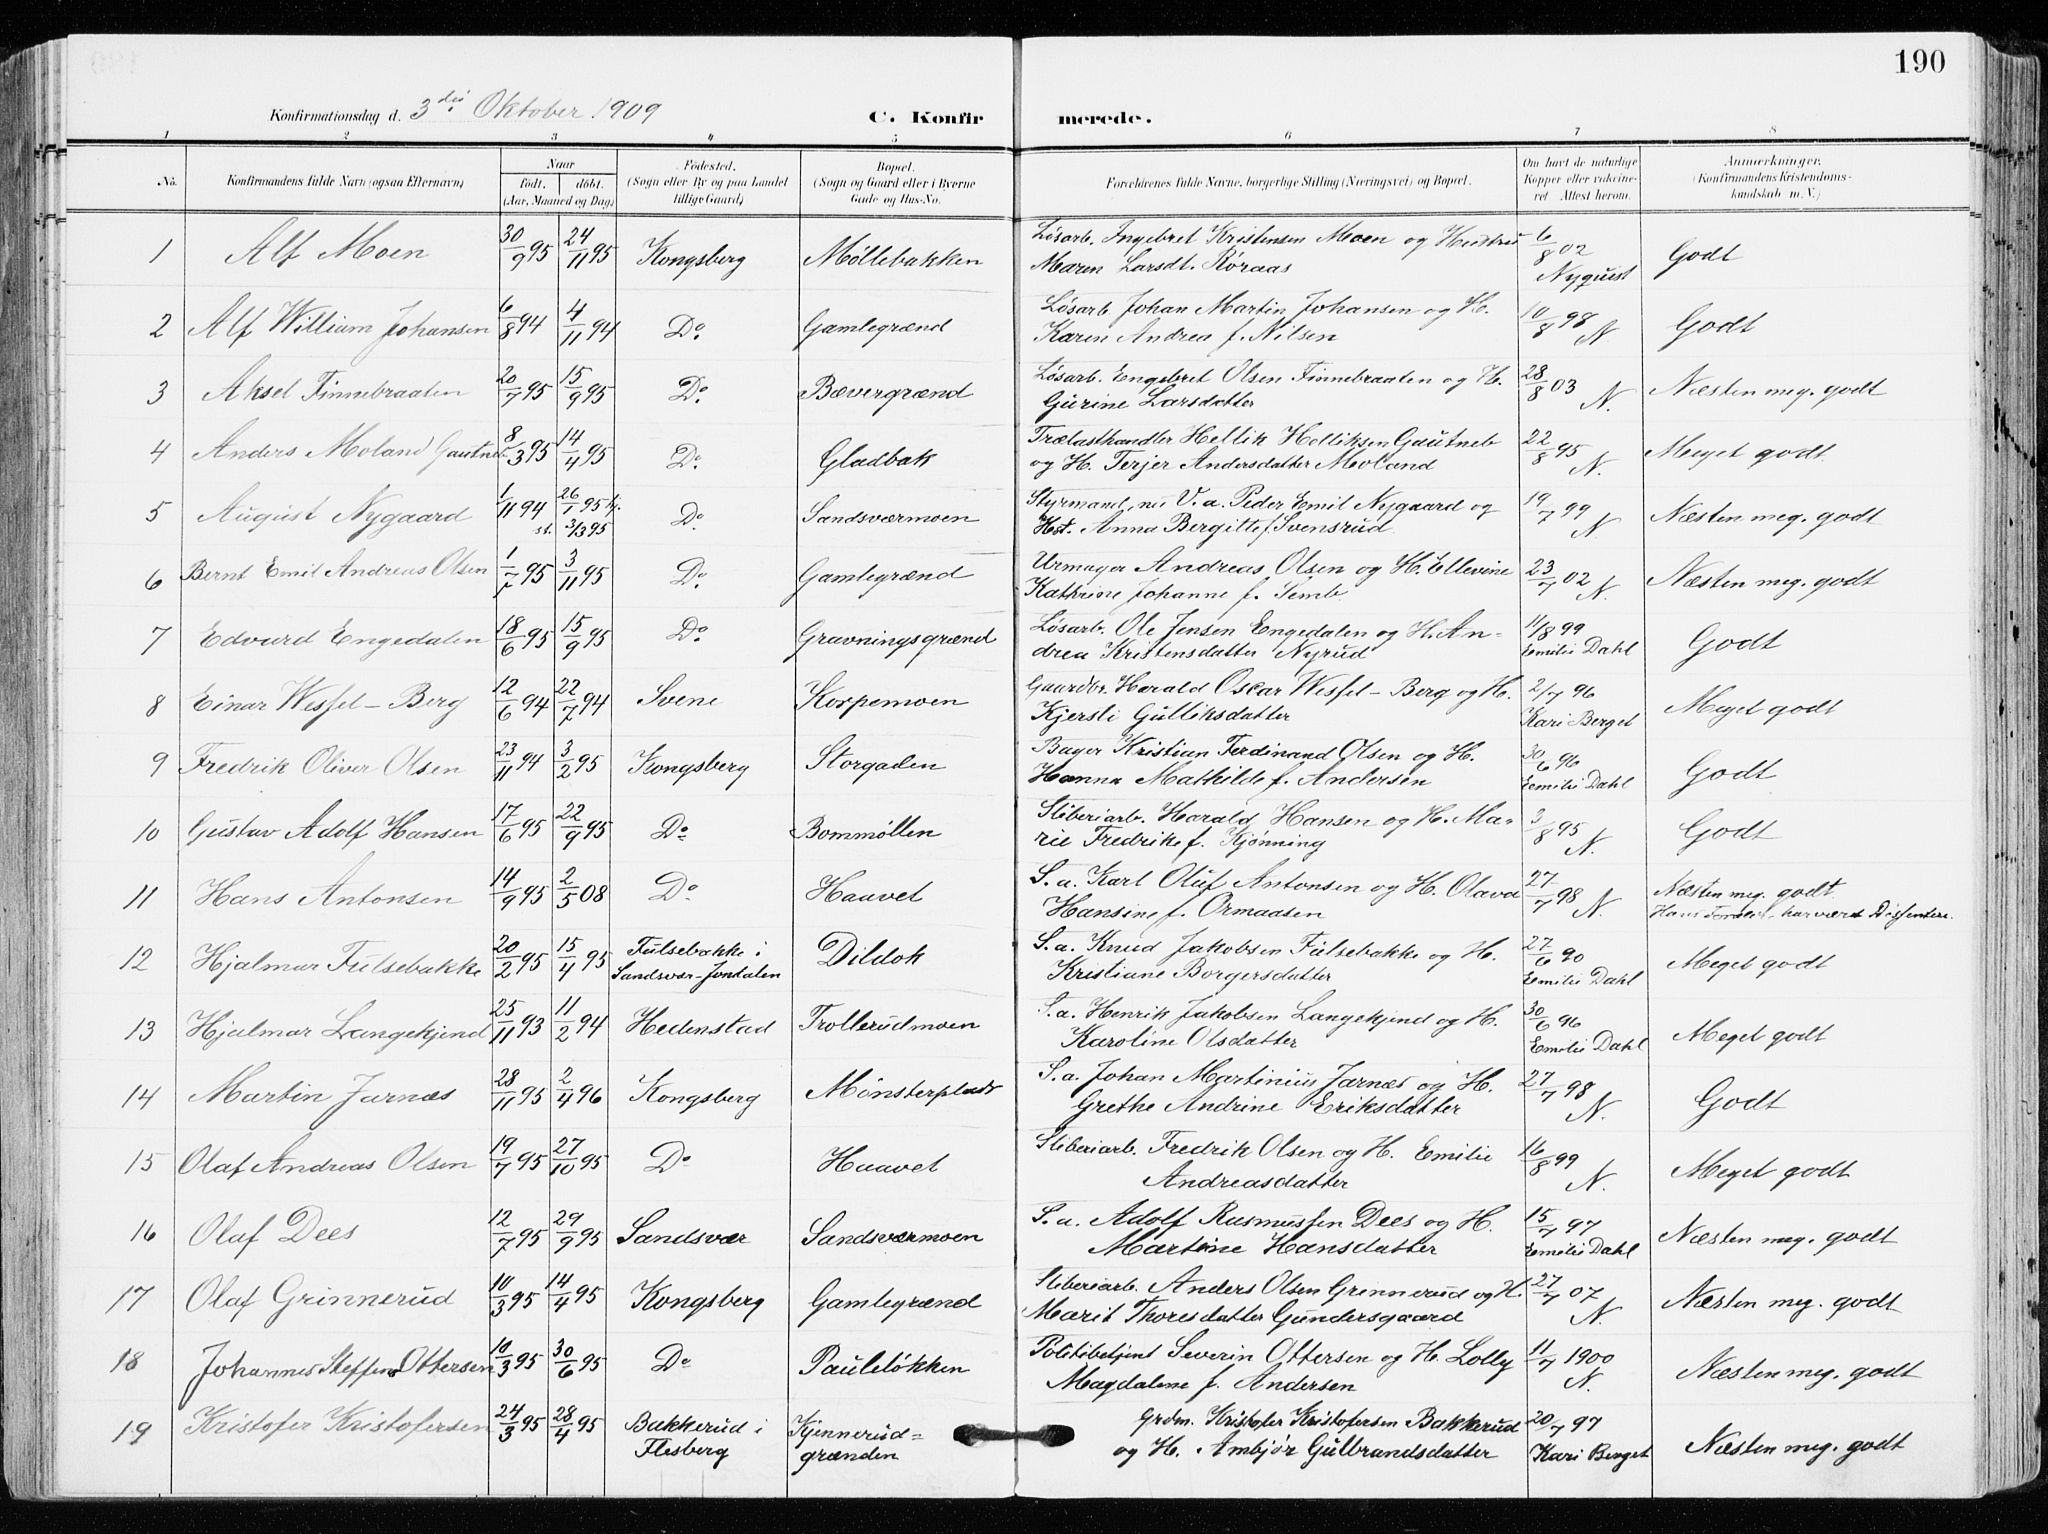 190
Konfirmationsdag d. 3die Oktober 1909
C. Konfirmerede.
1 2 3 4 5 6 7 8
No. Konfirmandens fulde Navn (ogsaa Efternavn) Naar født. døbt. (Aar, Maaned og Dag) Fødested. (Sogn eller By og paa Landet tillige Gaard) Bopæl. (Sogn og Gaard eller i Byerne Gade og Hus-No. Forældrenes fulde Navne, borgerlige Stilling (Næringsvei) og Bopæl. Om havt de naturlige Kopper eller vakcineret Attest herom. Anmærkninger. (Konfirmandens Kristendomskundskab m. V.)
1 Alf Moen 30/9 95 24/11 95 Kongsberg Møllebakken Løsarb. Ingebret Kristensen Moen og Hustru 6/8 02 Godt
Maren Larsdt. Røraas Nyquist
2 Alf William Johansen 6/8 94 4/11 94 Do. Gamlegrænd Løsarb. Johan Martin Johansen og H. 10/8 98 Godt
Karen Andrea f. Nilsen N
3 Aksel Finnebraaten 20/7 95 15/9 95 Do. Bævergrænd Løsarb. Engebret Olsen Finnebraaten og H. 28/8 03 Næsten meg. godt
Gurine Larsdatter N.
4 Anders Moland Gautneb 8/3 95 14/4 95 Do. Gladbak Trælasthandler Hellik Helliksen Gautneb 22/8 95 Meget godt.
og H. Terjer Andersdatter Moland N.
5 August Nygaard 1/11 94 26/1 95 hj. Do. Sandsværmoen Styrmand, nu V. a. Peder Emil Nygaard og 19/7 99 Næsten meg. godt
st. 3/3 95 Hst. Anna Bergitte f. Svensrud N.
6 Bernt Emil Andreas Olsen 1/7 95 3/11 95 Do. Gamlegrænd Urmager Andreas Olsen og H. Ellevine 23/7 02 Næsten meg. godt
Kathrine Johanne f. Semb. N.
7 Edvard Engedalen 18/6 95 15/9 95 Do. Gravningsgrænd Løsarb. Ole Jensen Engedalen og H. An- 11/8 99 Godt
drea Kristensdatter Nyrud Emilie Dahl
8 Einar Wessel-Berg 12/6 94 22/7 94 Svene Korpemoen Gaardbr. Harald Oscar Wessel-Berg og H. 2/7 96 Meget godt
Kjersti Gulliksdatter Kari Berget
9 Fredrik Oliver Olsen 23/11 94 3/2 95 Kongsberg Storgaden Bager Kristian Ferdinand Olsen og H. 30/6 96 Godt
Hanna Mathilde f. Andersen Emilie Dahl
10 Gustav Adolf Hansen 17/6 95 22/9 95 Do Bommøllen Sliberiarb. Harald Hansen og H. Ma- 3/8 95 Godt
rie Fredrike f. Kjønning N.
11 Hans Antonsen 14/9 95 2/5 08 Do Haavet S. a. Karl Oluf Antonsen og H. Olava 27/7 98 Næsten meg. godt.
Hansine f. Ormaasen N. har været Dissentere.
12 Hjalmar Fulsebakke 20/2 95 15/4 95 Fulsebakke i Dildok S. a. Knud Jakobsen Fulsebakke og H. 27/6 90 Meget godt
Sandsvær-Jondalen Kristiane Borgersdatter Emilie Dahl
13 Hjalmar Langekjend 25/11 93 11/2 94 Hedenstad Trollerudmoen S. a. Henrik Jakobsen Langekjend og H. 30/6 96 Meget godt
Karoline Olsdatter Emilie Dahl
14 Martin Jarnæs 28/11 95 2/4 96 Kongsberg Mønsterplads S. a. Johan Martinius Jarnæs og H. 27/7 98 Godt
Grethe Andrine Eriksdatter N.
15 Olaf Andreas Olsen 19/7 95 27/10 95 Do Haavet Sliberiarb. Fredrik Olsen og H. Emilie 16/8 99 Meget godt
Andreasdatter N.
16 Olaf Dees 12/7 95 29/9 95 Sandsvær Sandsværmoen S. a. Adolf Rasmussen Dees og H. 15/7 97 Næsten meg. godt
Martine Hansdatter Emilie Dahl
17 Olaf Grinnerud 10/3 95 14/4 95 Kongsberg Gamlegrænd Sliberiarb. Anders Olsen Grinnerud og H. 27/7 07 Næsten meg. godt
Marit Thoresdatter Gundersgaard N.
18 Johannes Steffen Ottersen 10/3 95 30/6 95 Do Pauleløkken Politibetjent Severin Ottersen og H. Lolly 11/7 1900 Næsten meg. godt
Magdalene f. Andersen N.
19 Kristofer Kristofersen 24/3 95 28/4 95 Bakkerud i Kjennerud= Grdm. Kristofer Kristofersen Bakkerud 20/7 97 Næsten meg. godt
Flesberg grænden og H. Ambjør Gulbrandsdatter Kari Berget